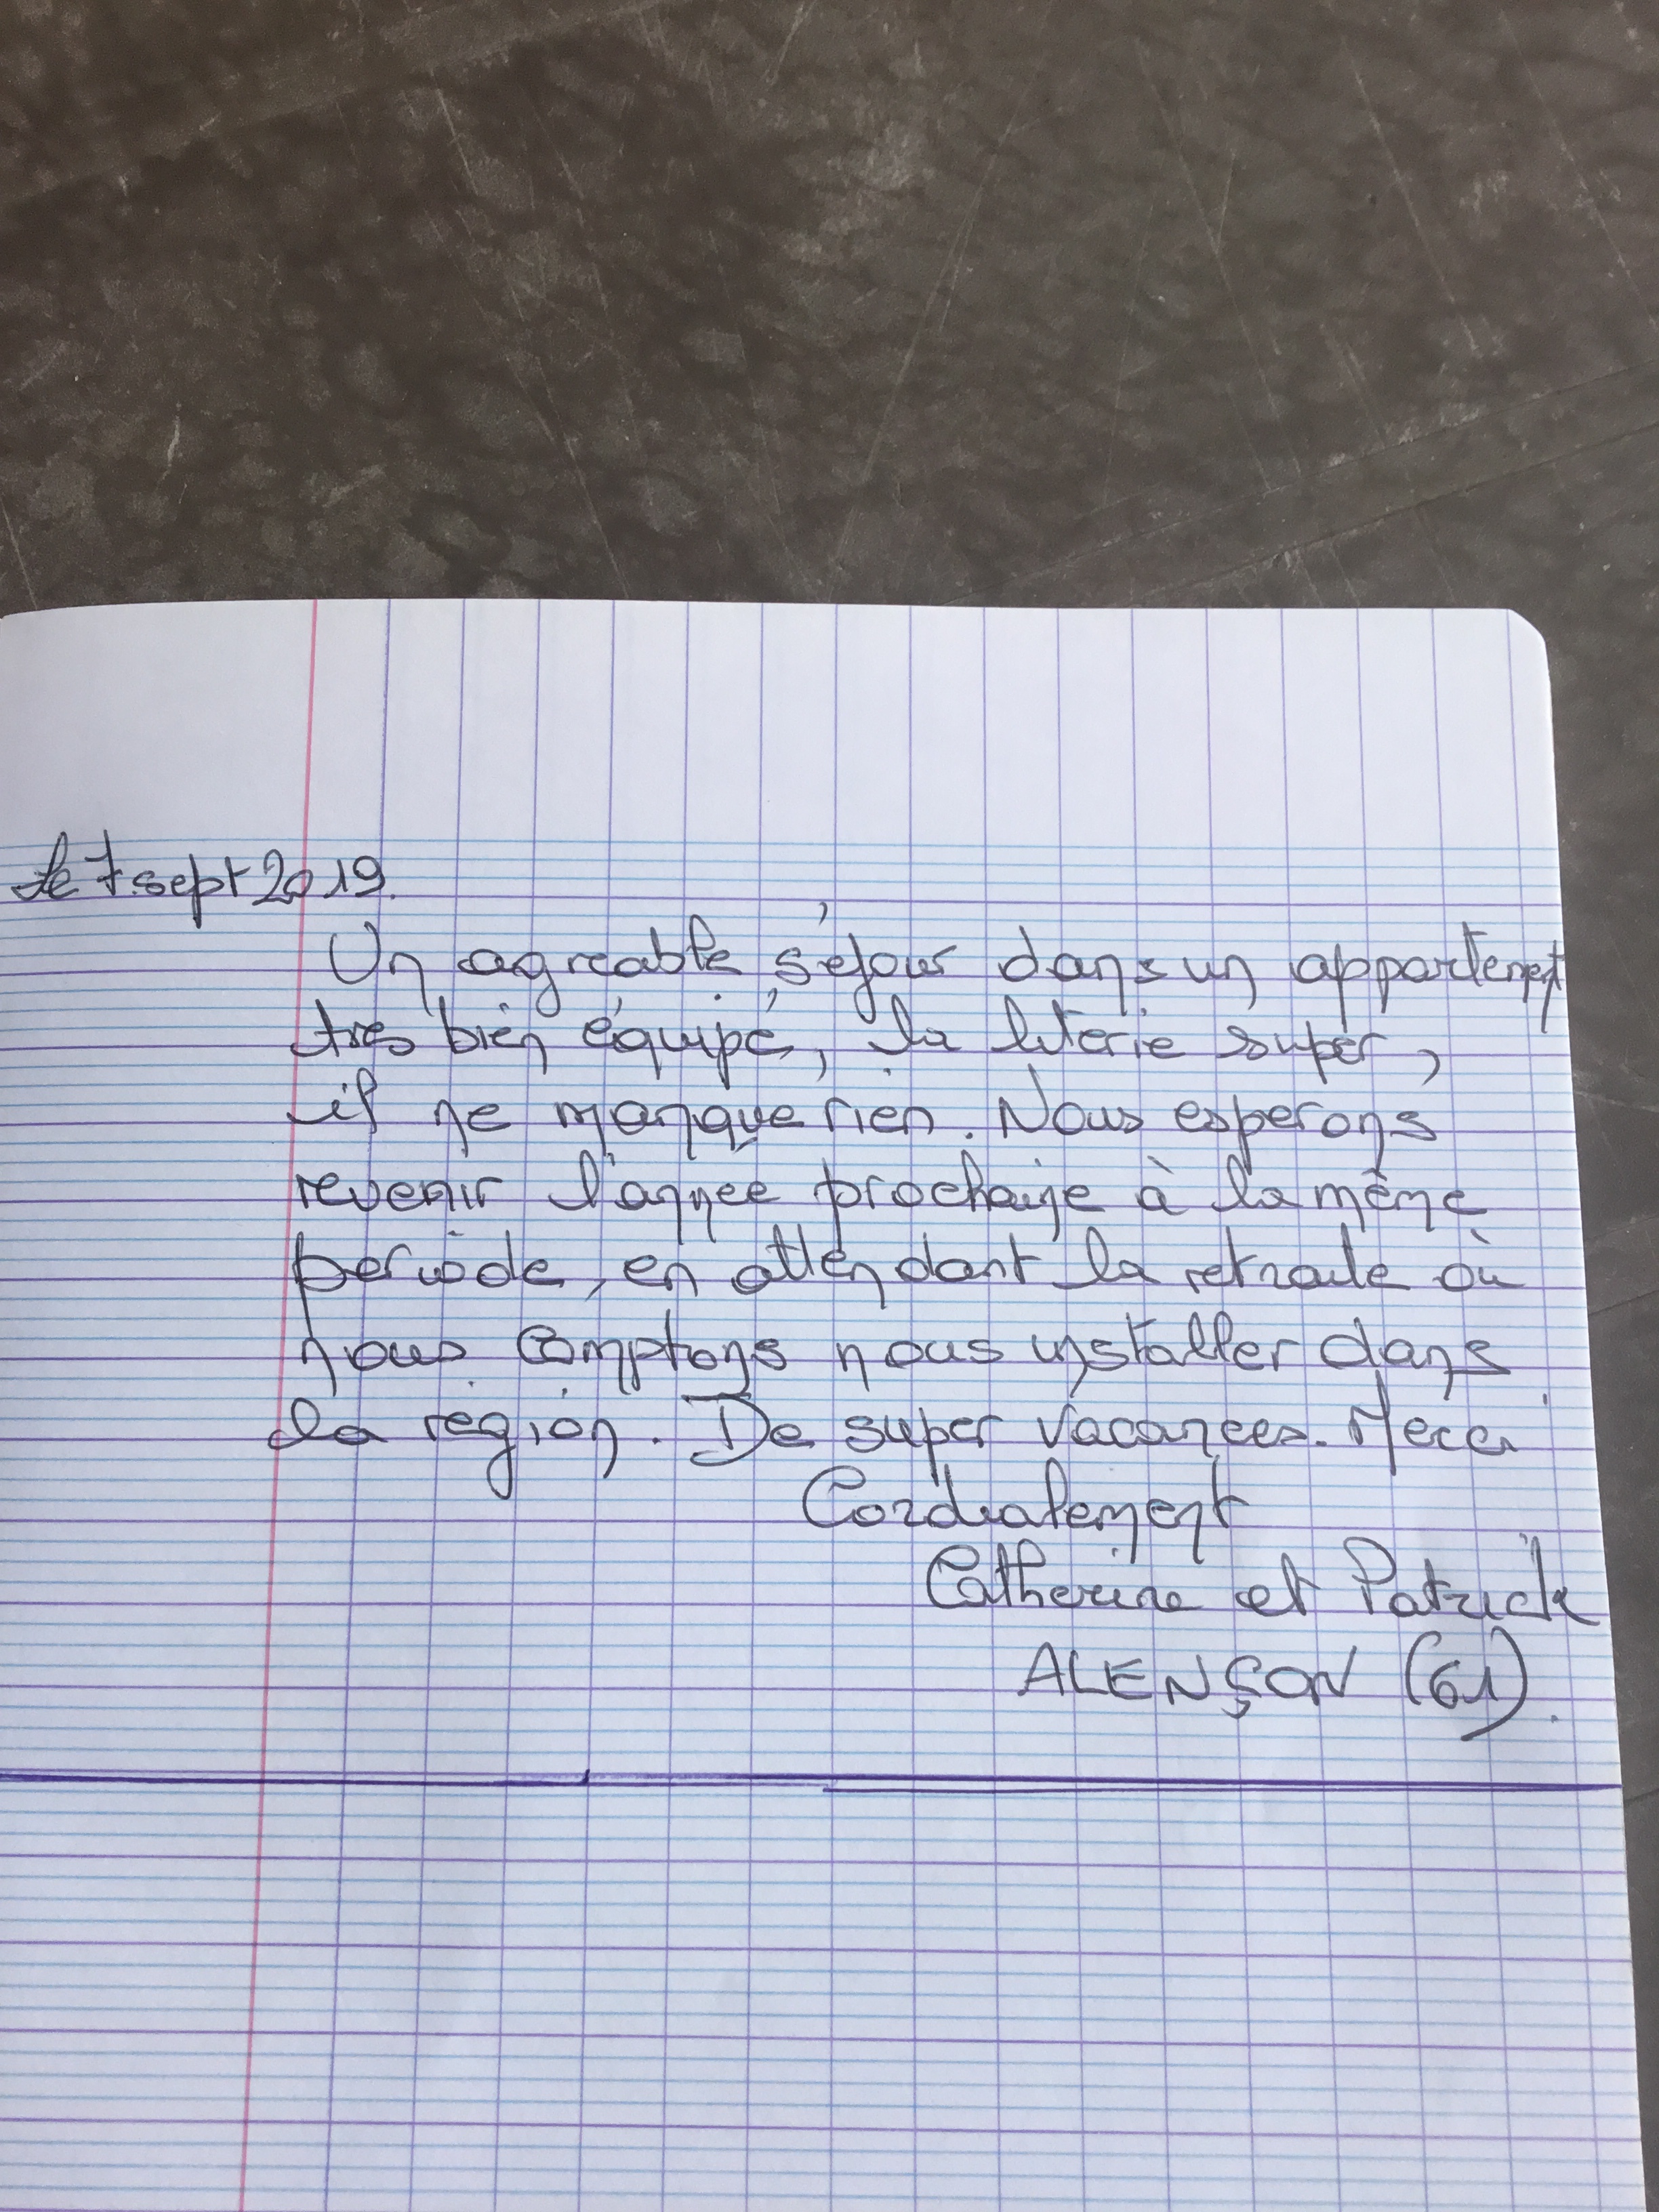 Le 7 sept 2019.
Un agreable séjour dans un appartement
tres bien équipé, la literie super,
il ne manque rien. Nous esperons
revenir l'année prochaine à la même
periode, en attendant la retraite où
nous comptons nous installer dans
la région. De super vacances. Merci
Cordialement
Catherine et Patrick
ALENÇON (61).